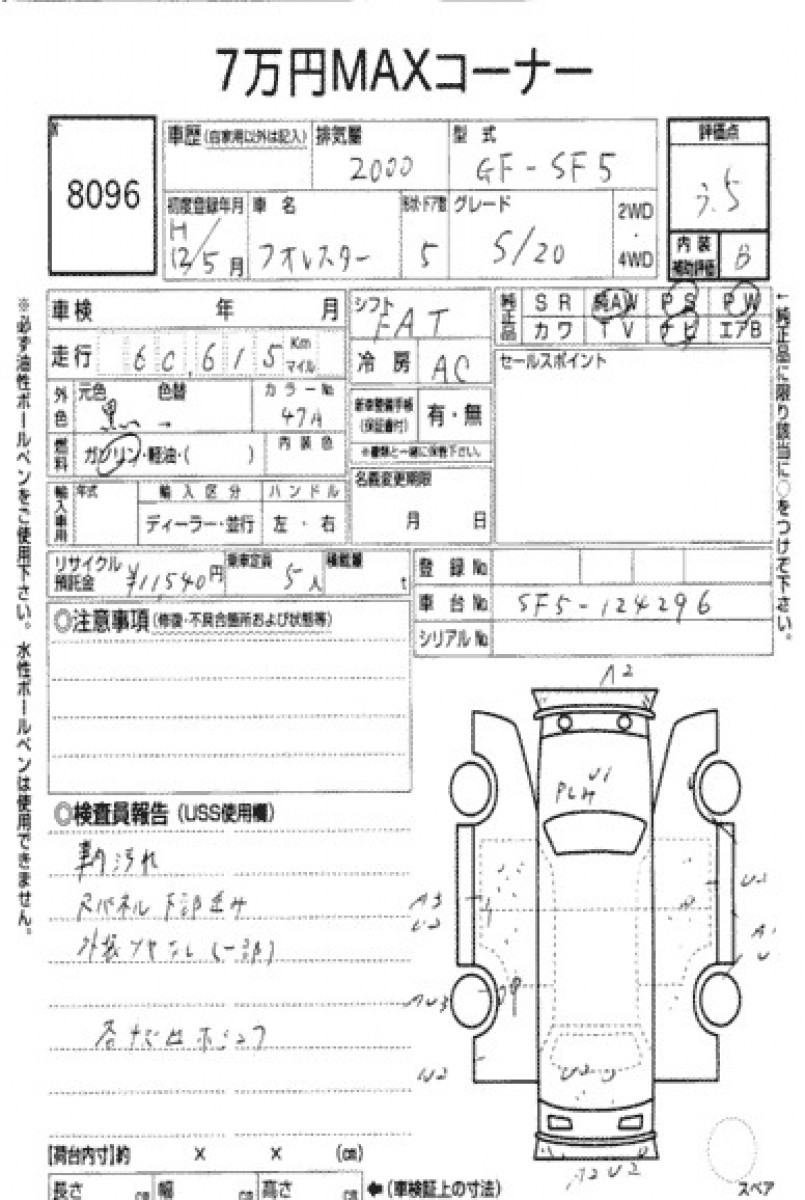 7万円MAXコーナー
8096
車歴(自家用以外は記入)
排気量 2000
型式 GF-SF5
評価点 3.5
初度登録年月 H12/5月
車名 フォレスター
形状・ドア数 5
グレード S/20
2WD・4WD
内装補助評価 B
車検 年 月
シフト FAT
純正品 SR 純AW PS PW
カワ TV ナビ エアB
走行 60,615 Km マイル
冷房 AC
セールスポイント
外色 元色 黒 色替 →
カラーNo 47A
新車整備手帳(保証書付) 有・無
※書類と一緒に保管下さい。
燃料 ガソリン・軽油・( )
内装色
輸入車用 年式 輸入区分 ハンドル
ディーラー・並行 左・右
名義変更期限
月 日
リサイクル預託金 ¥11,540円
乗車定員 5人
積載量 t
登録No
車台No SF5-124296
シリアルNo
◎注意事項(修復・不具合箇所および状態等)
※必ず油性ボールペンをご使用下さい。水性ボールペンは使用できません。
↑純正品に限り該当に○をつけて下さい。
◎検査員報告(USS使用欄)
車内汚れ
A2
U1
A3
U2
U2
A2 U2
[荷台内寸]約 × × (cm)
長さ cm 幅 cm 高さ cm ←(車検証上の寸法)
スペア